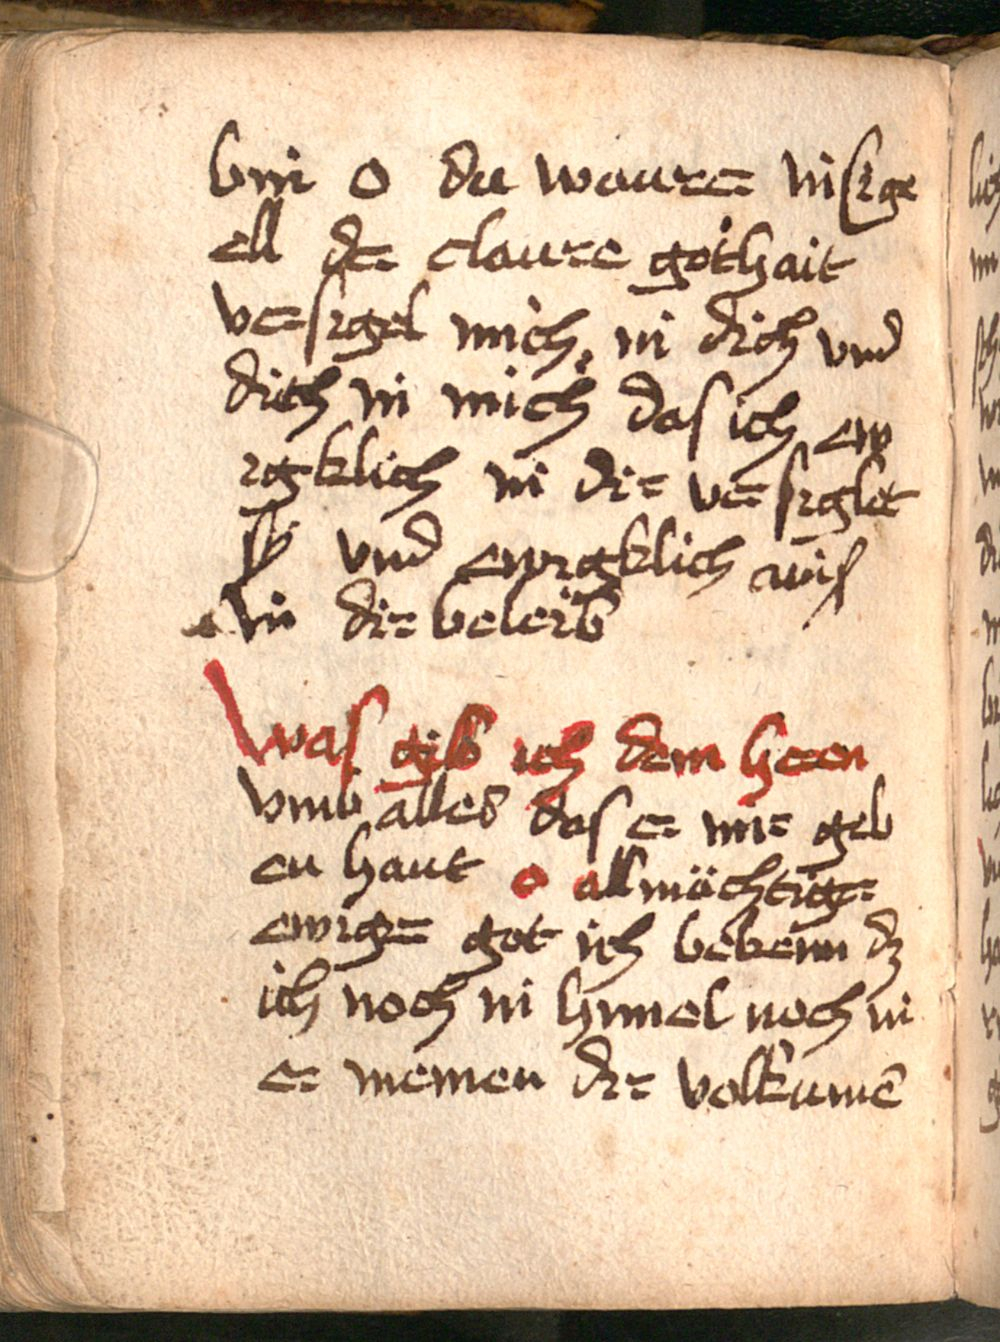 bin o du waures insige
ell der claure gothait
versigel mich in dich vnd
dich in mich das ich ew
igklich in dir versiglet
sy vnd ewigklich
in dir beleib
Was gib ich dem heren
vmb alles das er mir geb
en haut o allmächtiger
ewiger got ich beken dz
ich noch in himel noch in
er niemen dir volkumē